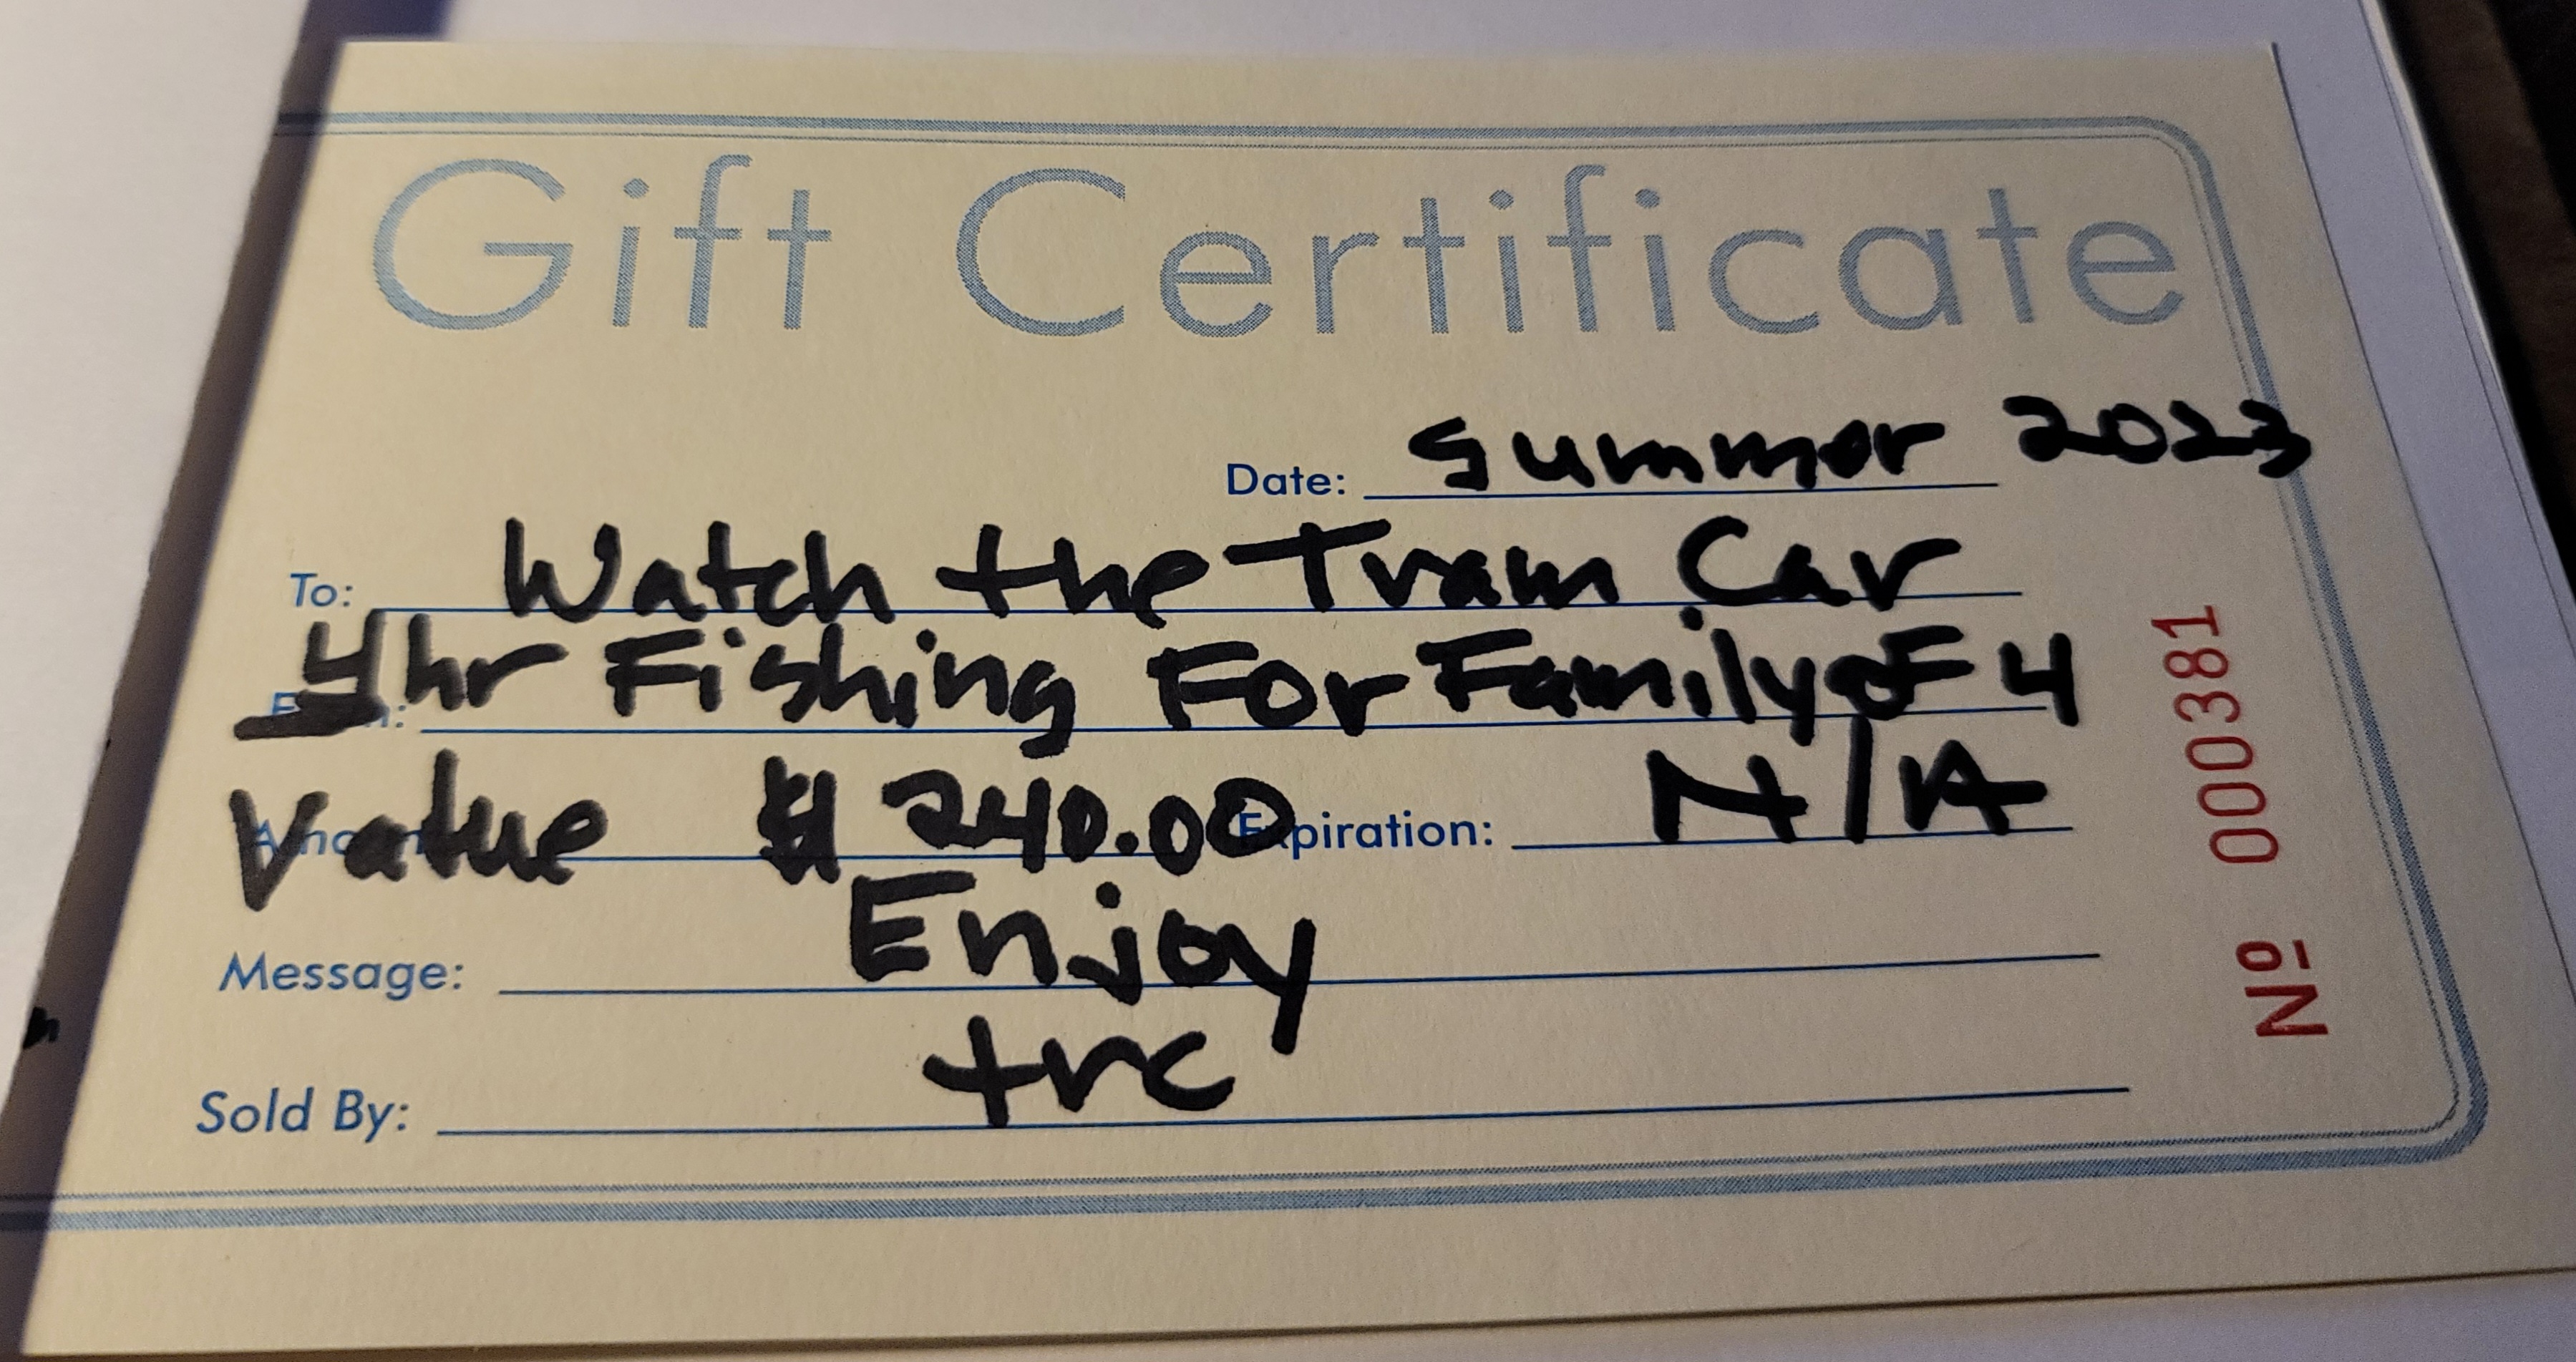 Gift Certificate
Date: Summer 2023
To: Watch the Tram Car
4hr Fishing For Family of 4
Value $240.00 Expiration: N/A
Message: Enjoy
Sold By: trc
Nº 000381